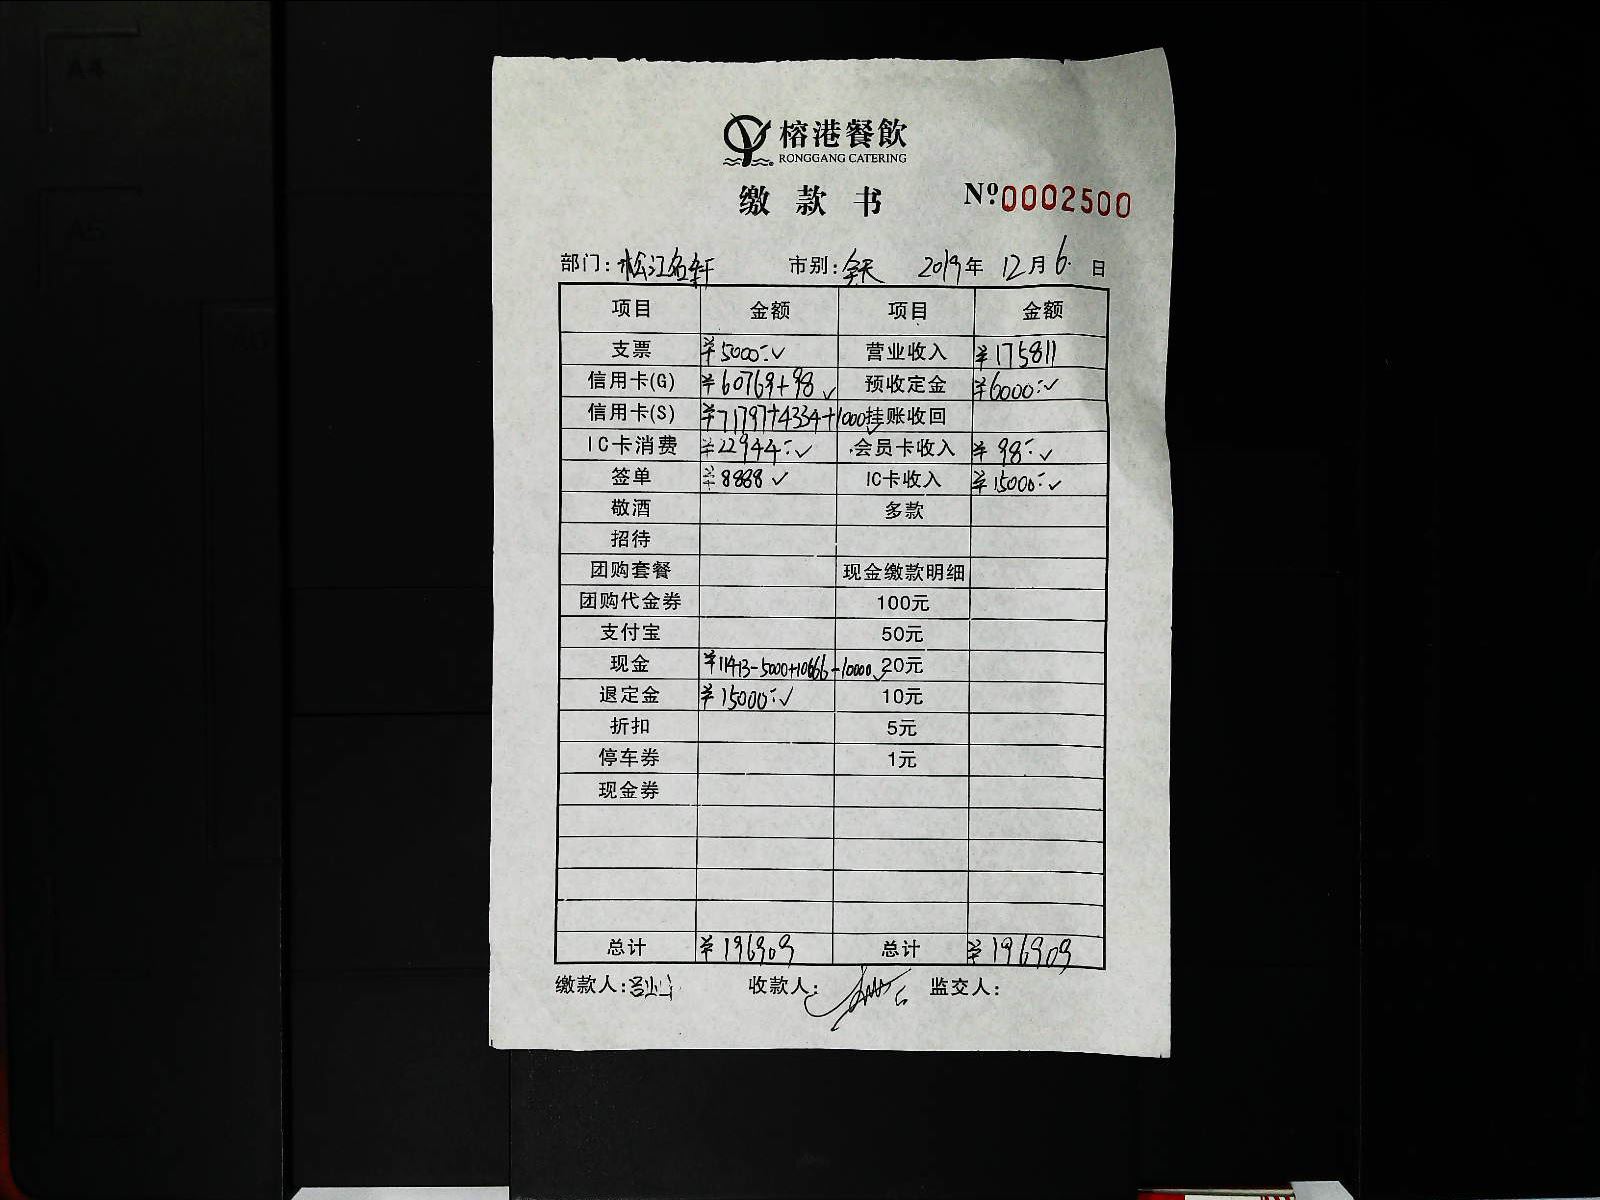 榕港餐飲
RONGGANG CATERING
缴款书 Nº 0002500
部门: 松江名轩 市别: 全天 2019年 12月 6日
项目 金额 项目 金额
支票 ¥5000:- ✓ 营业收入 ¥175811
信用卡(G) ¥60769+98 ✓ 预收定金 ¥6000:- ✓
信用卡(S) ¥71797+4334+1000 ✓ 挂账收回
IC卡消费 ¥22944:- ✓ 会员卡收入 ¥98:- ✓
签单 ¥8888 ✓ IC卡收入 ¥15000:- ✓
敬酒 多款
招待
团购套餐 现金缴款明细
团购代金券 100元
支付宝 50元
现金 ¥11413-5000+10666-10000 ✓ 20元
退定金 ¥15000:- ✓ 10元
折扣 5元
停车券 1元
现金券
总计 ¥196909 总计 ¥196909
缴款人: 收款人: 监交人: